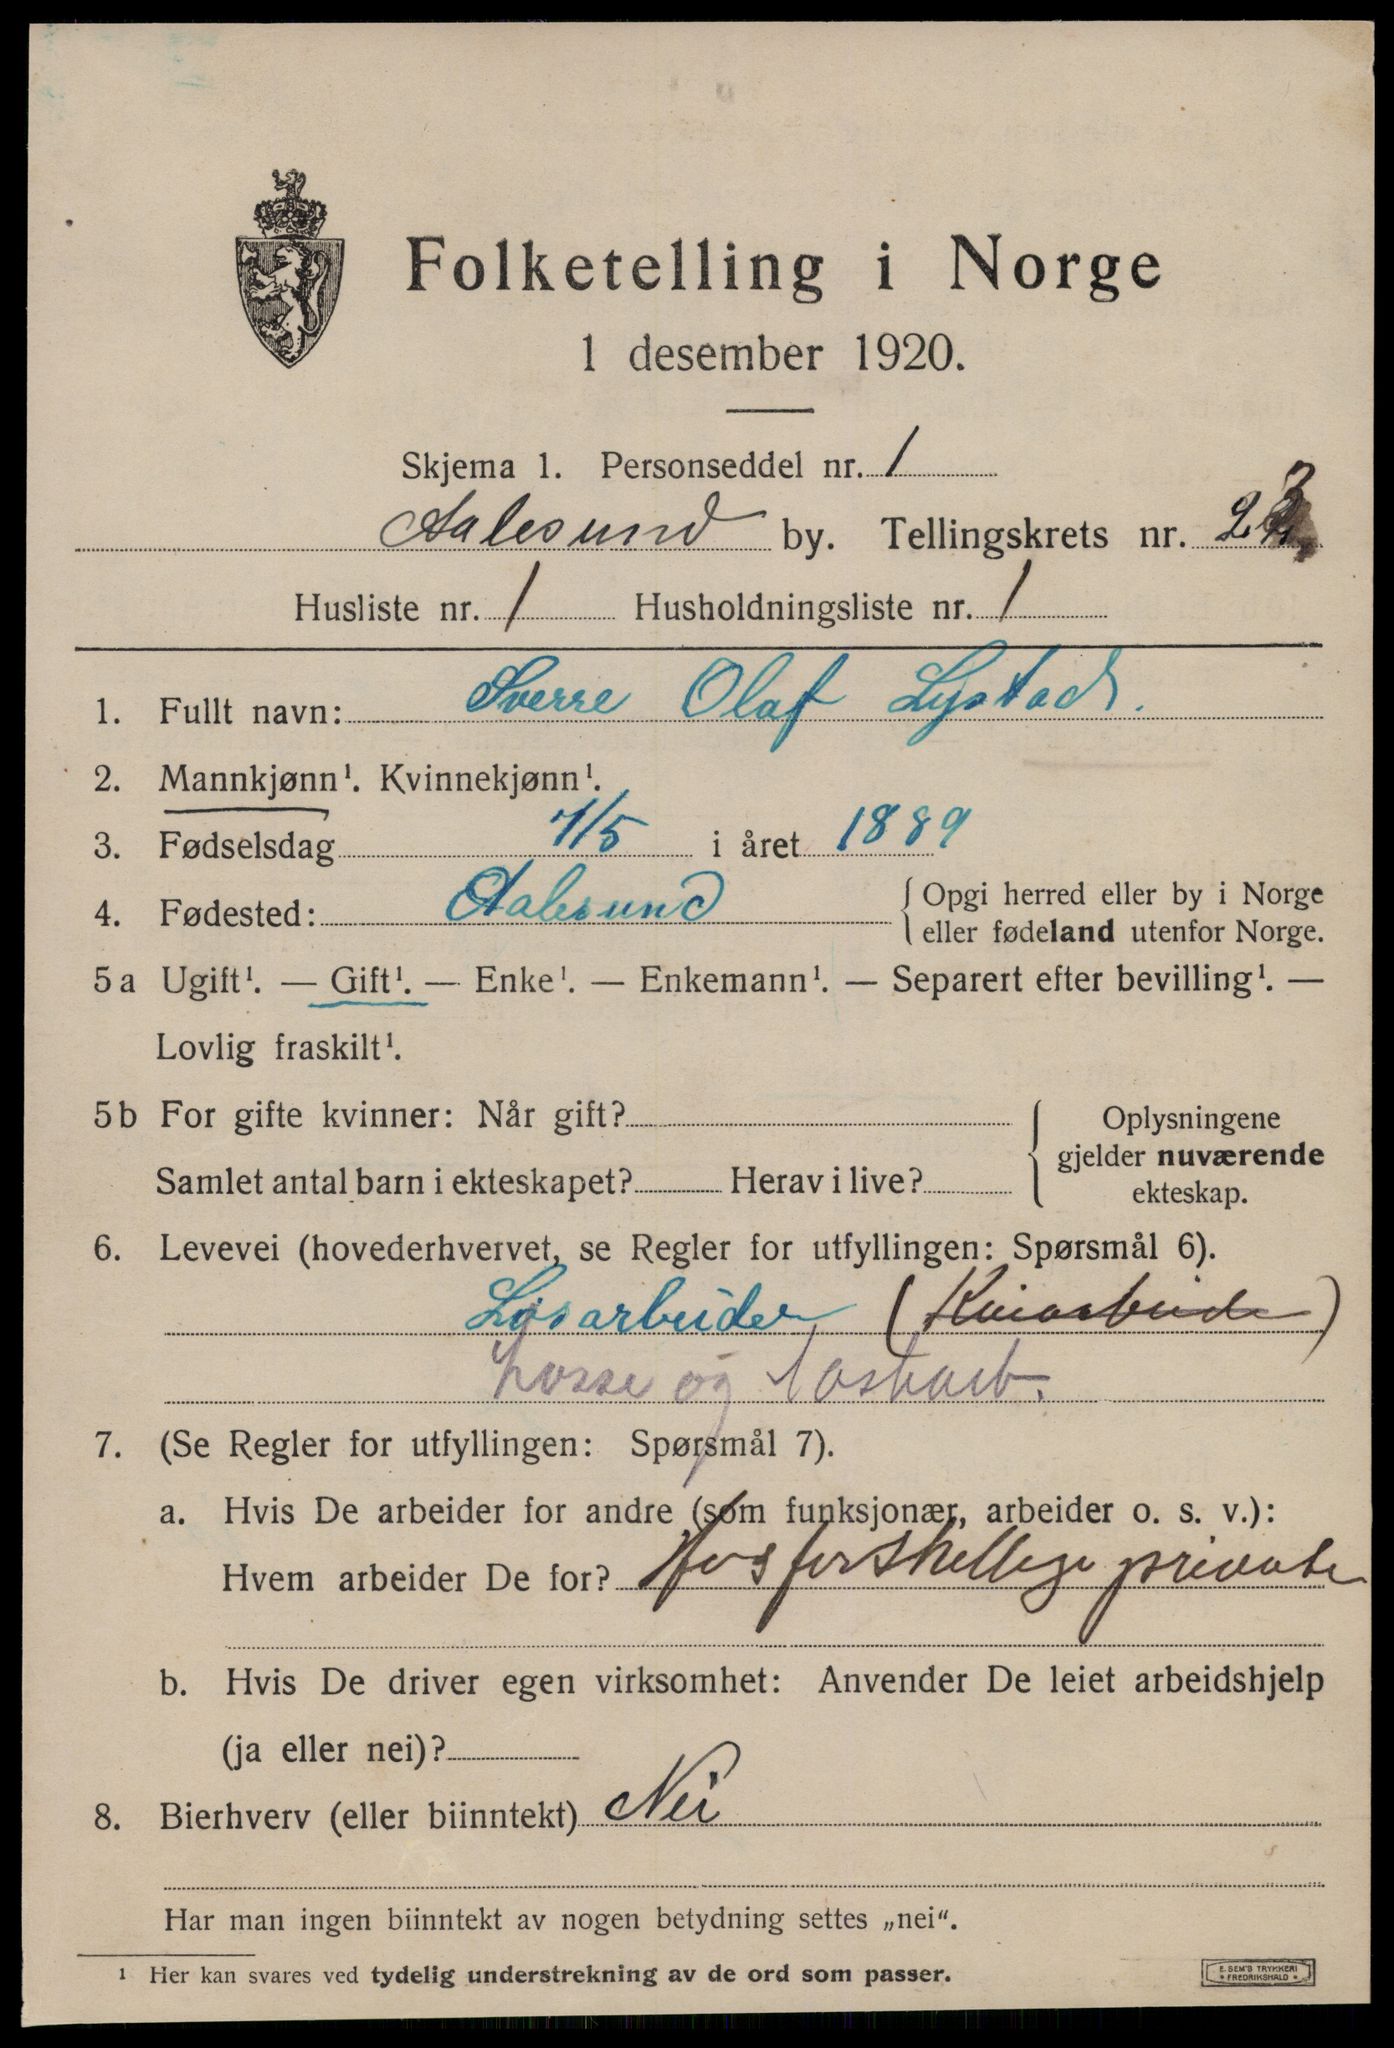 Folketelling i Norge
1 desember 1920.
Skjema 1. Personseddel nr. 1
Aalesund by. Tellingskrets nr. 23
Husliste nr. 1 Husholdningsliste nr. 1
1. Fullt navn: Sverre Olaf Lystad.
2. Mannkjønn¹. Kvinnekjønn¹.
3. Fødselsdag 7/5 i året 1889
4. Fødested: Aalesund { Opgi herred eller by i Norge
eller fødeland utenfor Norge.
5 a Ugift¹. — Gift¹. — Enke¹. — Enkemann¹. — Separert efter bevilling¹. —
Lovlig fraskilt¹.
5 b For gifte kvinner: Når gift? { Oplysningene
gjelder nuværende
Samlet antal barn i ekteskapet? Herav i live? ekteskap.
6. Levevei (hovederhvervet, se Regler for utfyllingen: Spørsmål 6).
Løsarbeider (Kaiarbeide)
Losse og lastearb.
7. (Se Regler for utfyllingen: Spørsmål 7).
a. Hvis De arbeider for andre (som funksjonær, arbeider o. s. v.):
Hvem arbeider De for? Hos forskellige private
b. Hvis De driver egen virksomhet: Anvender De leiet arbeidshjelp
(ja eller nei)?
8. Bierhverv (eller biinntekt) Nei
Har man ingen biinntekt av nogen betydning settes „nei“.
¹ Her kan svares ved tydelig understrekning av de ord som passer.
E. SEM'S TRYKKERI
• FREDRIKSHALD •